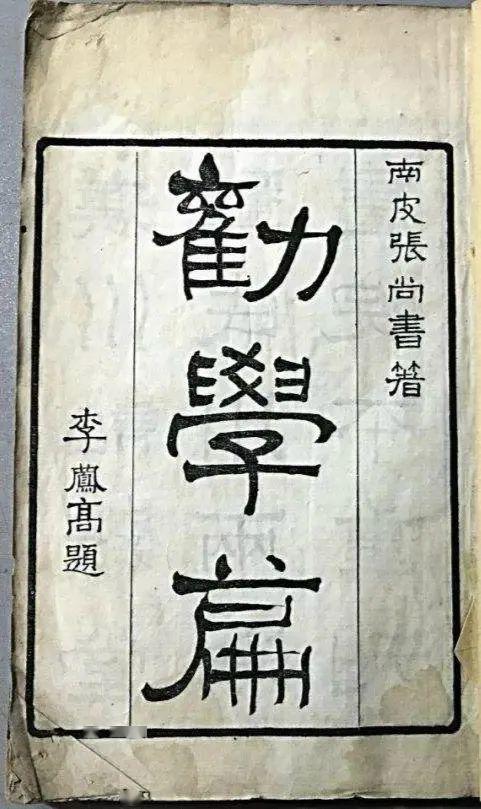 南皮張尚書箸
勸學篇
李鳳高題